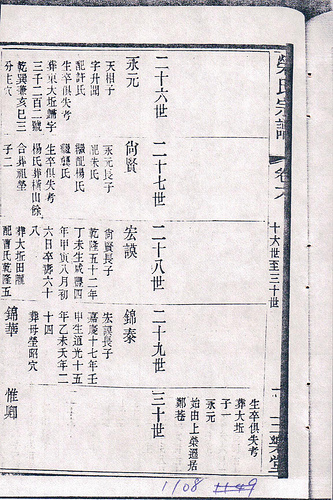 榮氏宗譜
卷六
十六世至三十世
三樂堂
生卒俱失考
葬大坵
子一
永元
始由上榮遷居
鄭巷
二十六世
永元
天相子
字升聞
配許氏
生卒俱失考
葬東大坵歸字
三千二百二號
乾巽兼亥巳三
分主穴
二十七世
尚賢
永元長子
配朱氏
繼配楊氏
繼龔氏
生卒俱失考
楊氏葬橋山餘
合葬祖塋
子二
二十八世
宏謨
尚賢長子
乾隆五十二年
丁未生咸豐四
年甲寅八月初
六日卒壽六十
八
葬大坵田
配曹氏乾隆五
二十九世
錦泰
宏謨長子
嘉慶十七年壬
申生道光十五
年乙未夭年二
十四
葬母塋昭穴
錦華
三十世
惟卿
1108 1149